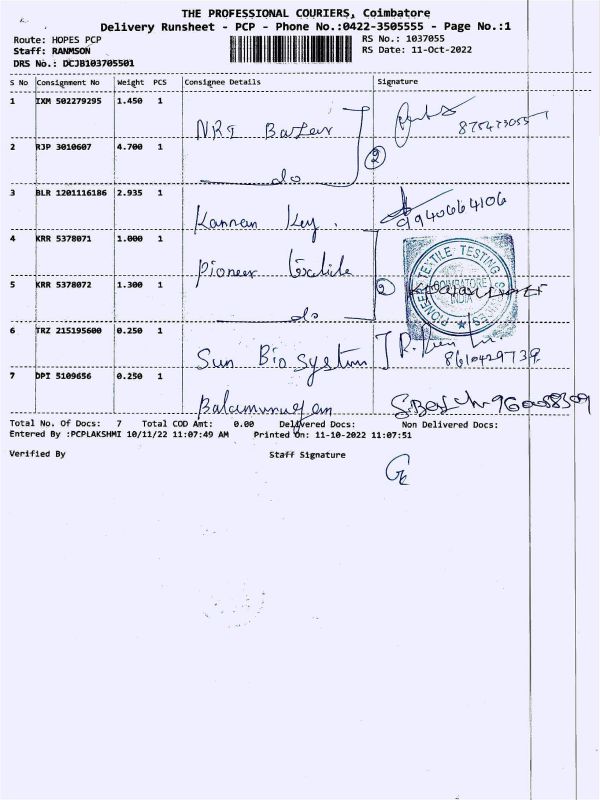 THE PROFESSIONAL COURIERS, Coimbatore
Delivery Runsheet - PCP - Phone No.:0422-3505555 - Page No.:1
Route: HOPES PCP RS No.: 1037055
Staff: RANMSON RS Date: 11-Oct-2022
DRS No.: DCJB103705501
S No Consignment No Weight PCS Consignee Details Signature
1 IXM 502279295 1.450 1
NRI Bazar
2 RJP 3010607 4.700 1 2
do
3 BLR 1201116186 2.935 1 9940664106
Kannan Key.
4 KRR 5378071 1.000 1
Pioneer Textile
PIONEER TEXTILE TESTING
COIMBATORE
INDIA
5 KRR 5378072 1.300 1 2
do
6 TRZ 215195600 0.250 1
Sun Bio System 8610429739
7 DPI 5109656 0.250 1
Balamurugan
Total No. Of Docs: 7 Total COD Amt: 0.00 Delivered Docs: Non Delivered Docs:
Entered By :PCPLAKSHMI 10/11/22 11:07:49 AM Printed On: 11-10-2022 11:07:51
Verified By Staff Signature